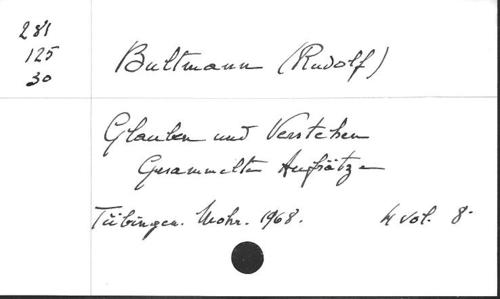 281
125
30
Bultmann (Rudolf)
Glauben und Verstehen
Gesammelte Aufsätze
Tübingen. Mohr. 1968. 4 vol. 8°